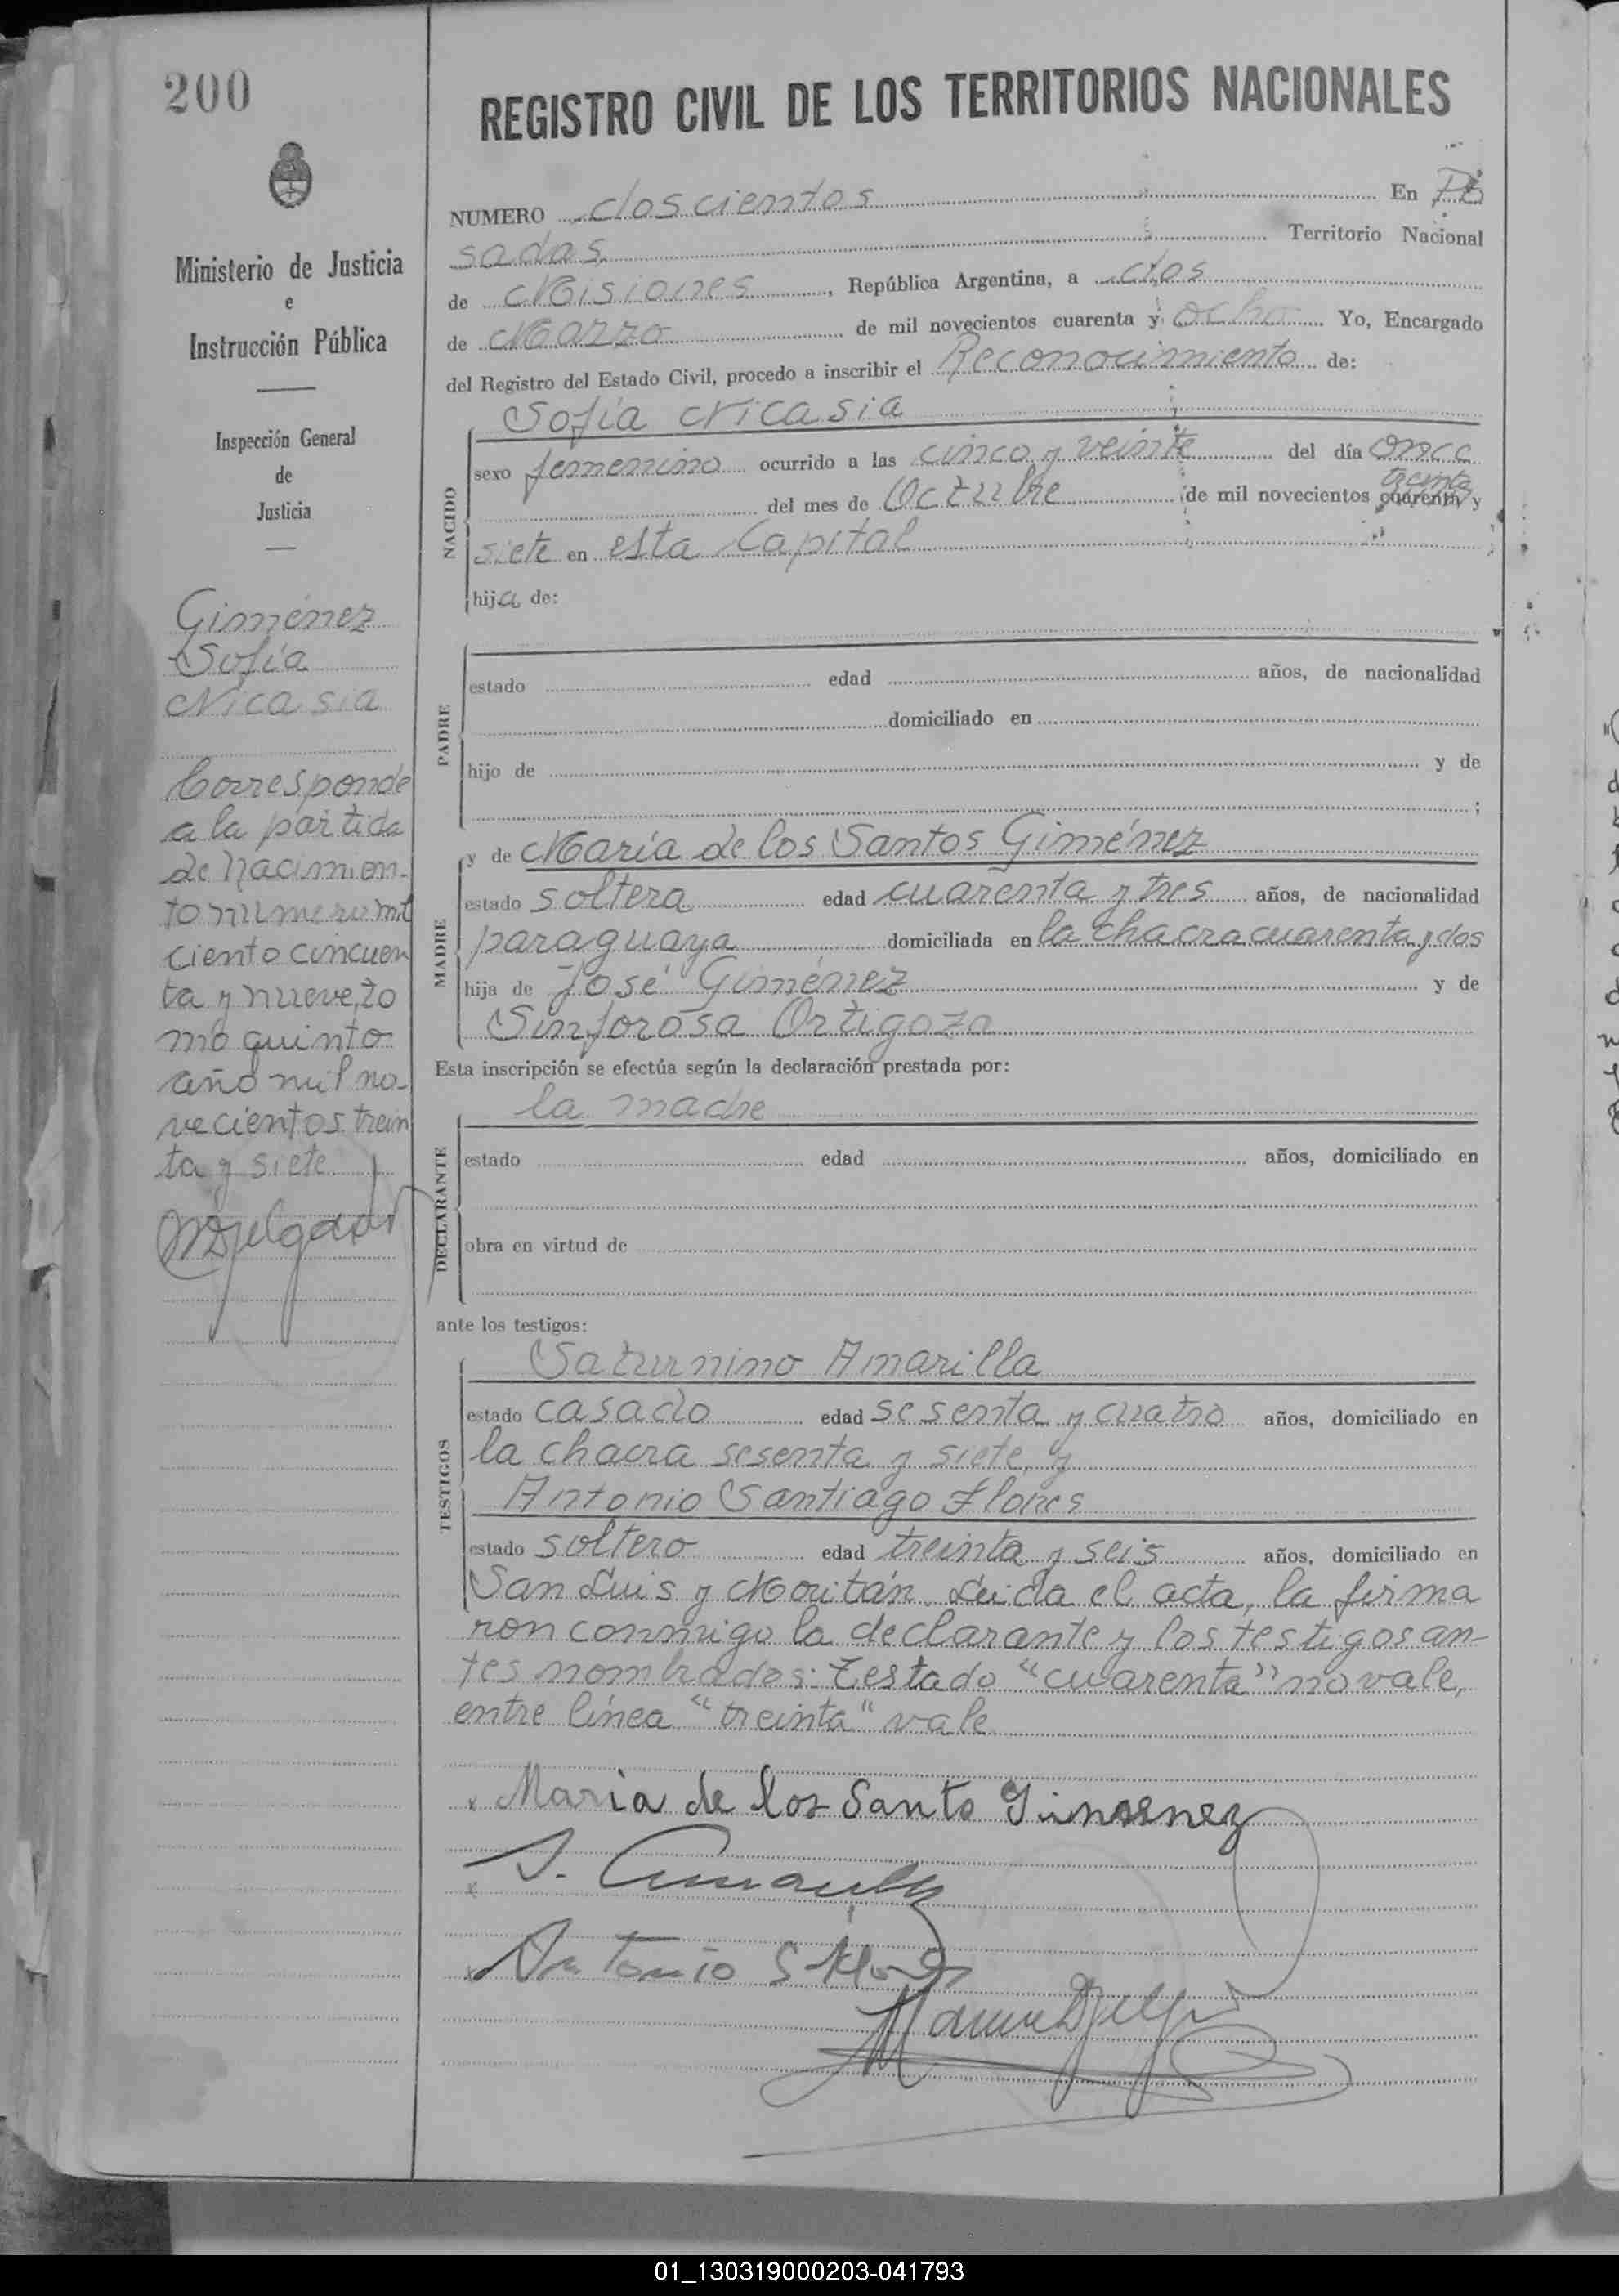 200
Ministerio de Justicia
e
Instrucción Pública
Inspección General
de
Justicia
Giménez
Sofía
Nicasia
Corresponde
a la partida
de nacimien-
to numero mil
ciento cincuen
ta y nueve, to
mo quinto
año mil no-
vecientos trein
ta y siete
REGISTRO CIVIL DE LOS TERRITORIOS NACIONALES
NUMERO doscientos En Po
sadas Territorio Nacional
de Misiones, República Argentina, a dos
de Marzo de mil novecientos cuarenta y ocho Yo, Encargado
del Registro del Estado Civil, procedo a inscribir el Reconocimiento de:
Sofía Nicasia
NACIDO
sexo femenino ocurrido a las cinco y veinte del día once
treinta
del mes de Octubre de mil novecientos cuarenta y
siete en esta Capital
hija de:
PADRE
estado edad años, de nacionalidad
domiciliado en
hijo de y de
;
MADRE
y de María de los Santos Giménez
estado soltera edad cuarenta y tres años, de nacionalidad
paraguaya domiciliada en la chacra cuarenta y dos
hija de José Giménez y de
Sinforosa Ortigoza
Esta inscripción se efectúa según la declaración prestada por:
la madre
DECLARANTE
estado edad años, domiciliado en
obra en virtud de
ante los testigos:
TESTIGOS
Saturnino Amarilla
estado casado edad sesenta y cuatro años, domiciliado en
la chacra sesenta y siete, y
Antonio Santiago Flores
estado soltero edad treinta y seis años, domiciliado en
San Luis y Moritán. Leida el acta, la firma
ron conmigo la declarante y los testigos an-
tes nombrados: Testado "cuarenta" no vale,
entre línea "treinta" vale
Maria de los Santo Gimenez
S. Amarilla
Antonio S Flores
01_130319000203-041793